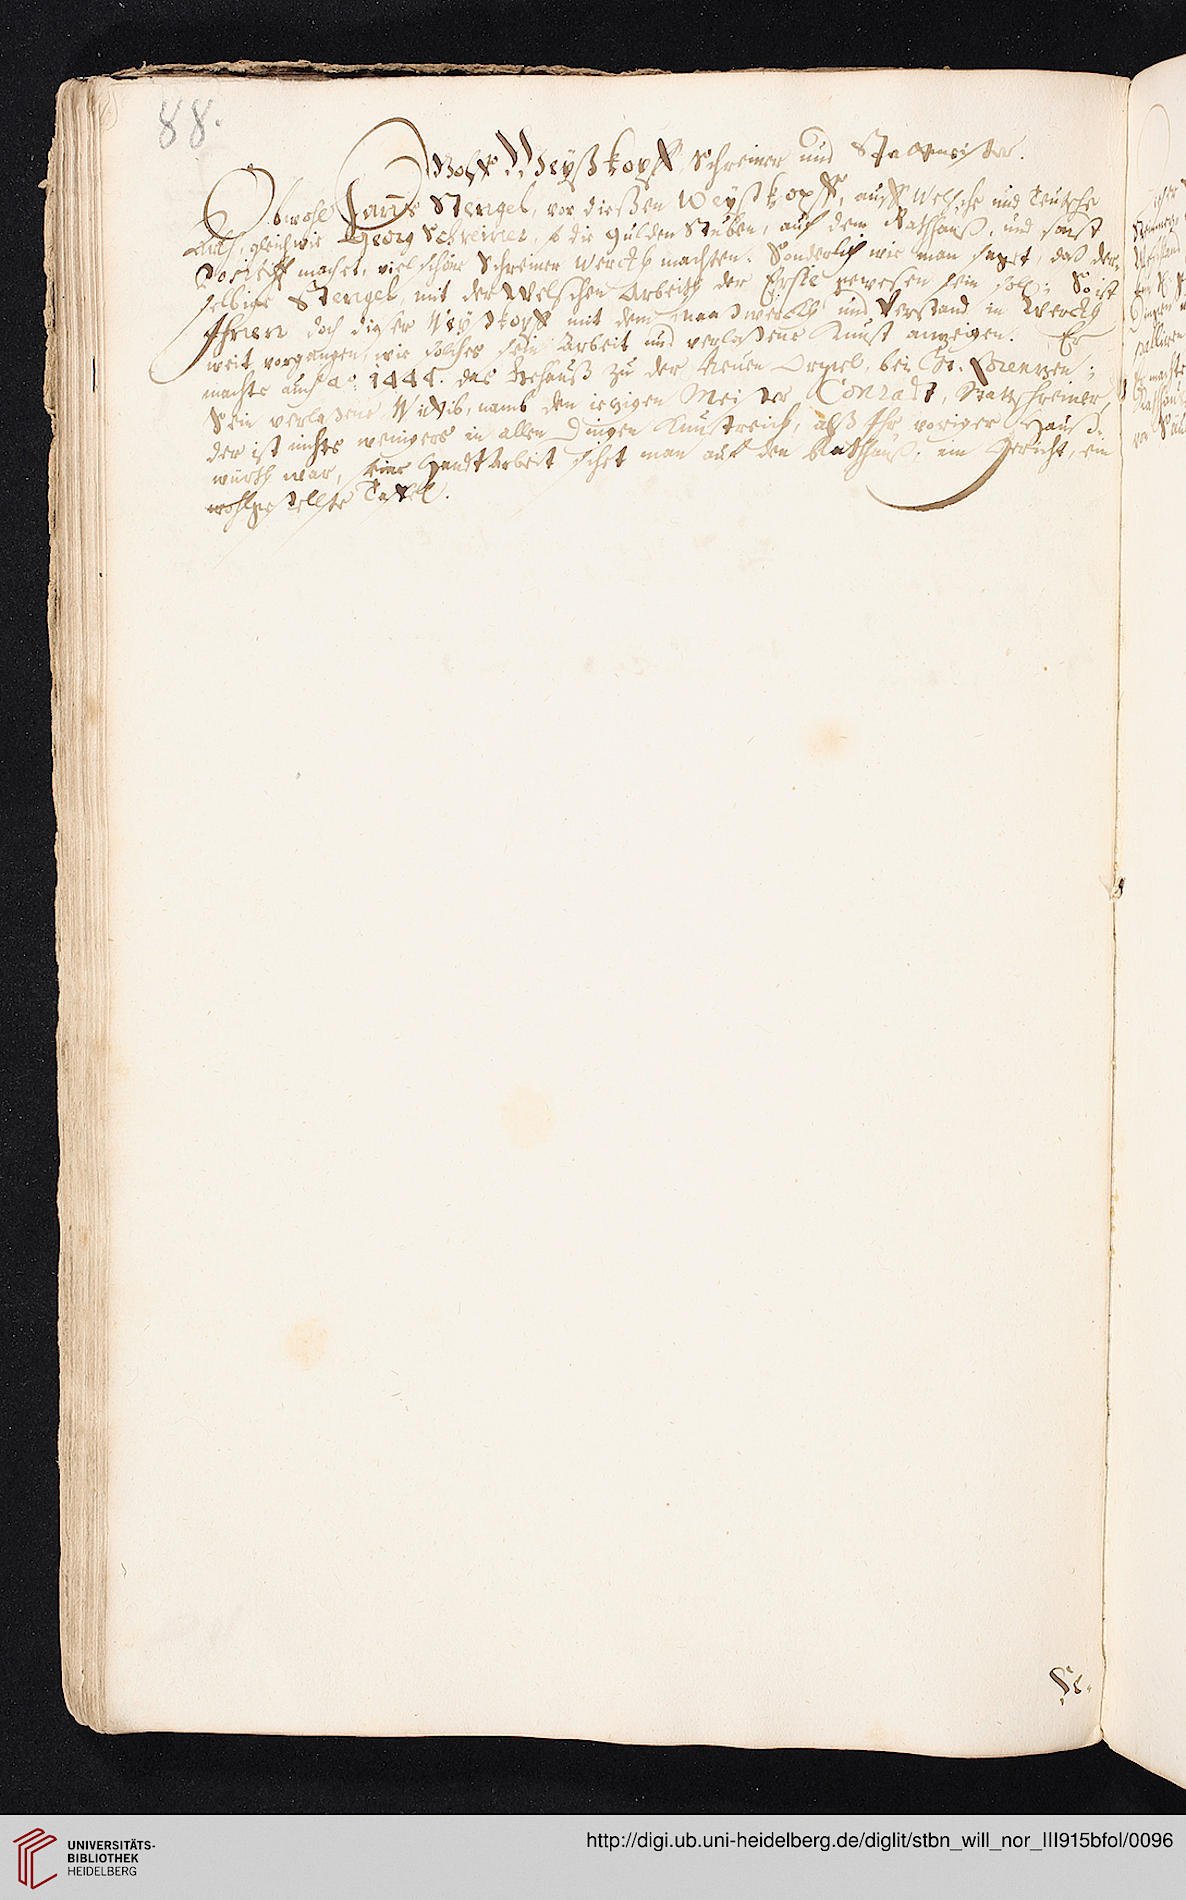 88.
Wolff Weyßkopff, Schreiner und Stattmeister.
Obwohl Hanß Stengel, vor dießen Weyßkopff, auff Welsche und Teutsche
Art, gleichwie Georg Schreiner, so die gülden Stuben, auf dem Rathhauß, und sonst
Postteff machet, viel schöne Schreiner Werckh machten. Sonderlich wie man saget, daß der-
selbige Stengel, mit der Welschen Arbeith der Erste gewesen sein soll; So ist
Ihnen doch dieser Weyßkopff mit dem Handwerckh und Verstand in Werckh
weit vorgangen, wie solches sein Arbeit und verlaßene Kunst anzeigen. Er
machte auch a.o 1444. das Gehauß zu der Neuen Orgel, bei St. Lorenzen;
Sein verlaßene Wittib, namb den iezigen Meister Conradt, Stattschreiner,
der ist nichts wenigers in allen Dingen Kunstreich, alß Ihr voriger Hauß-
würth war, seine Handt Arbeit sihet man auf den Rathhauß, im Gericht, ein
wohlgestellte Taffel.
UNIVERSITÄTS-
BIBLIOTHEK
HEIDELBERG
http://digi.ub.uni-heidelberg.de/diglit/stbn_will_nor_III915bfol/0096